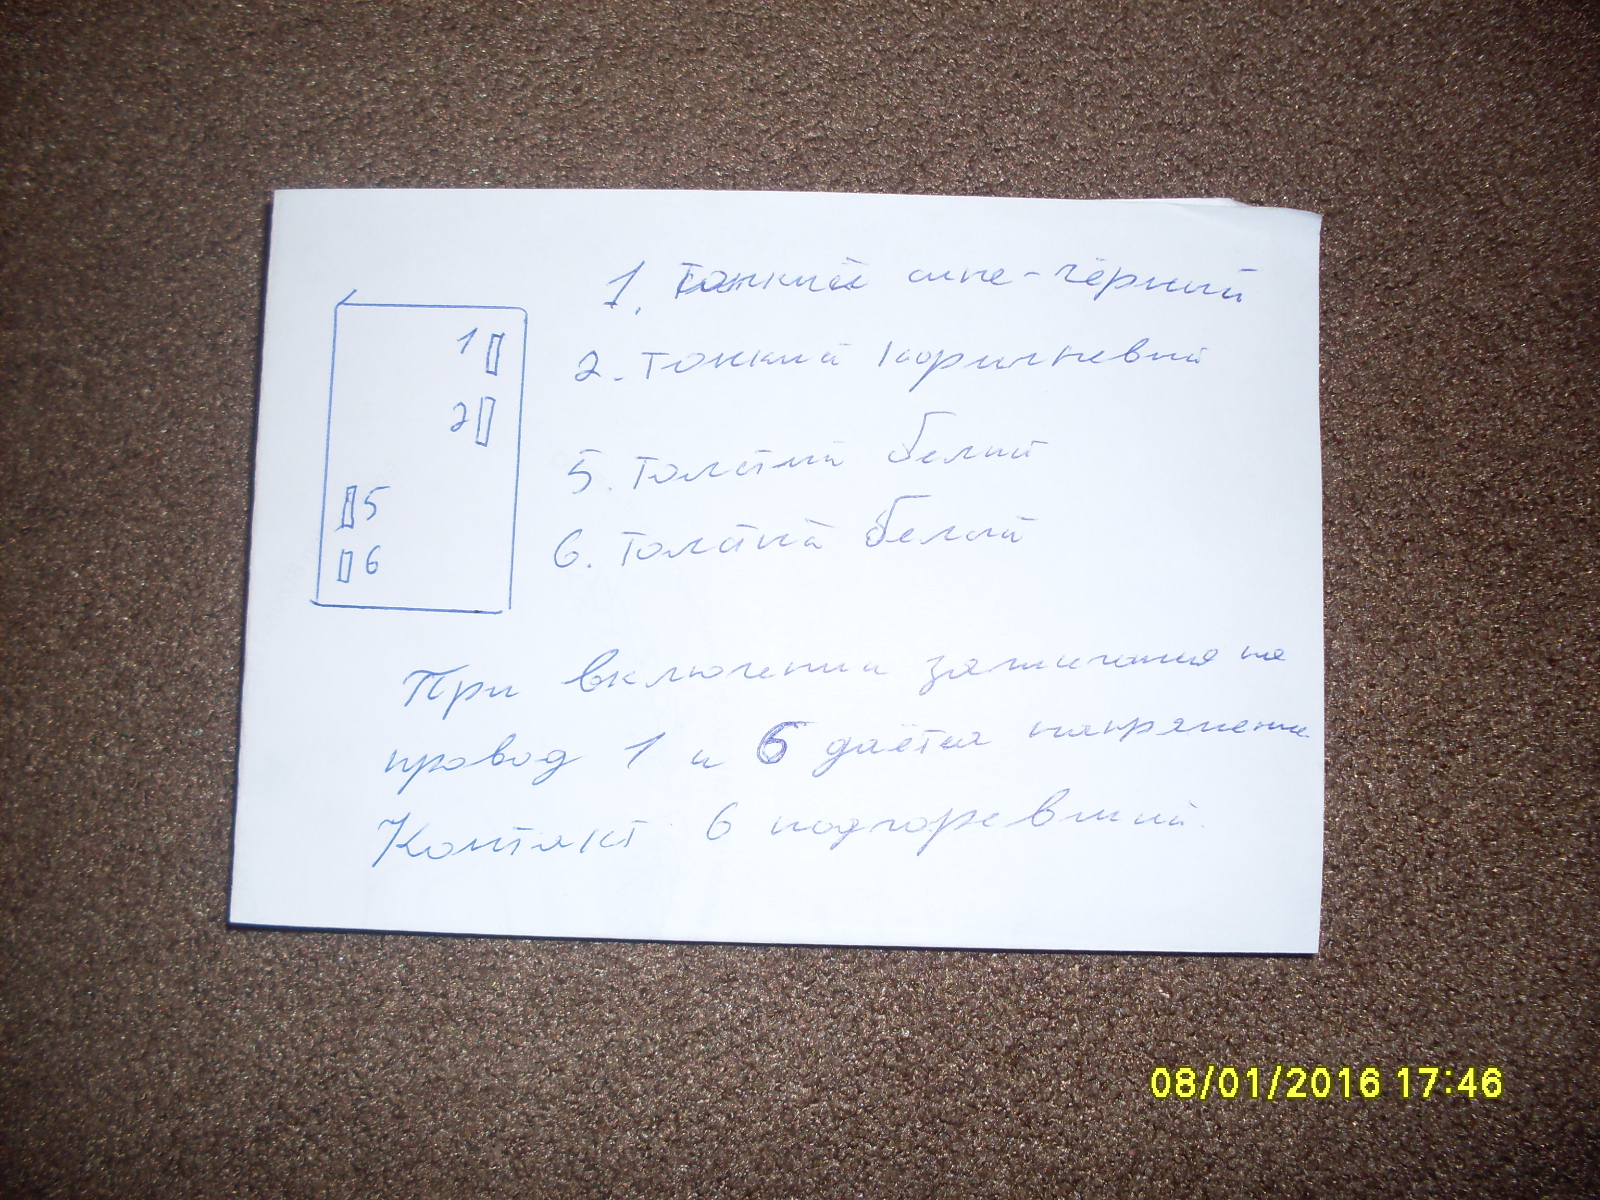 1. Тонкий сине-чёрный
1
2. Тонкий коричневый
2
5. Толстый белый
5
6. Толстый белый
6
При включении зажигания на
провод 1 и 6 даётся напряжение
Контакт 6 подгоревший.
08/01/2016 17:46